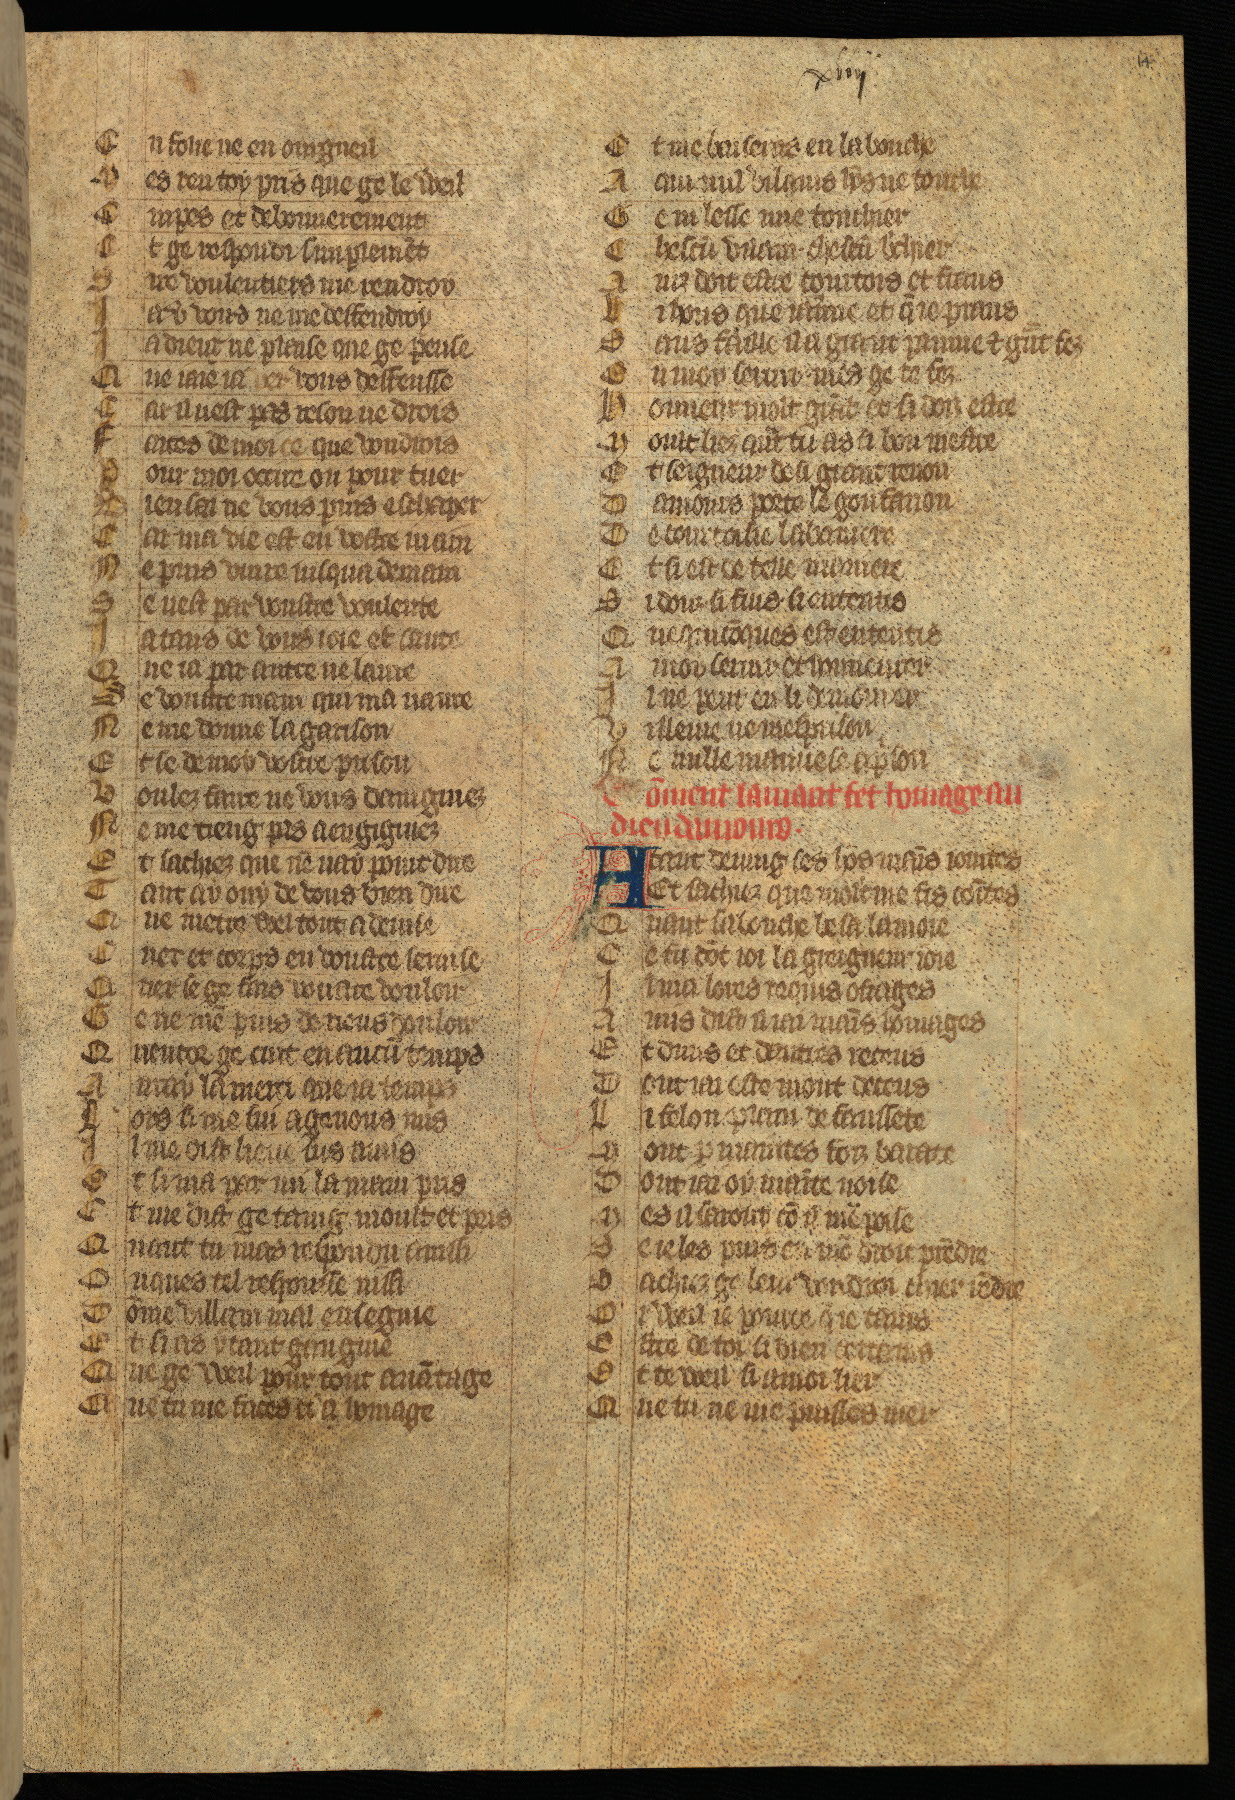 xiiij
14
E n folie ne en orngueil
M es ren toy pris que ge le weil
E n pes et debonnerement
E t ge respondi simplemēt
S ire voulentiers me rendroy
J a ỿ vous ne me deffendroy
J a dieu ne plaise que ge pense
Q ue iaie ia ỿer vous deffensse
C ar il nest pas reson ne drois
F aites de moi ce que voudrois
P our moi occirre ou pour tuer
B ien sai ne vous puis eschaper
C ar ma vie est en vostre main
N e puis viure iusqua demain
S e nest par voustre voulente
J atans de vous ioie et sante
Q ue ia par autre ne laure
S e voustre main qui ma naure
N e me donne la garison
E t se de moy vostre prison
V oulez faire ne vous daingniez
N e me tieng pas a engigniez
E t sachiez que nē nay point dire
T ant ay ouy de vous bien dire
Q ue metre weil tout a deuise
C uer et corps en voustre seruise
Q ar se ge fais voustre vouloir
G e ne mē puis de riens douloir
Q uencor ge cuit en aucū temps
A uray la merci que ia temps
L ors si me fui a genous mis
J l me dist lieue sus amis
E t si ma par mi la main pris
E t me dist ge taing moult et pris
Q uant tu mas respondu ainsi
O nques tel responsse nissi
D ōme villain mal enseignie
E t si as ytant gaingnie
Q ue ge weil pour tout auātage
Q ue tu me faces ci a homage
E t me baiseras en la bouche
A qui nul vilains hōs ne touche
G e ni lesse mie touchier
C hescū vilain chescū bchier
A inz doit estre courtois et frans
L i hons que iaīme et q̄ ie prans
S ans faille il a grant painne et gn̄t fez
E n moy seruir mes ge te fez
H onneur molt grāt et si doiz estre
M oult liez qn̄t tu as si bon mestre
E t seigneur de si grant renon
D amours porte le gonfanon
D e courtoisie la baniere
E t si est de telle maniere
S i doiz si frans si ententis
Q ue quicōques est ententis
A moy seruir et honneurer
J l ne peut en li demourer
V illenie ne mesprison
N e nulle mauuese aprison
Cōment lamant fet homage au
dieu damours.
Atant deuing ses hōs mains iointes
Et sachiez que molt me fis cointes
Q uant sa bouche besa la moie
C e fu dōt ioi la greigneur ioie
J l ma lores requis ostages
A mis dist il iai mains homages
E t duns et dautres receus
D ont iai este mont deceus
L i felon plain de faussete
M ont p̱ maintes foiz barate
D ont iai oy mainte noise
M es il sauront cō il mē poise
S e ie les puis en mō droit prēdre
S achiez ge leur voudrai chier rēdre
O r weil ie pource q̄ ie taims
E stre de toi si bien certains
E t te weil si a moi lier
Q ue tu ne me puisses nier